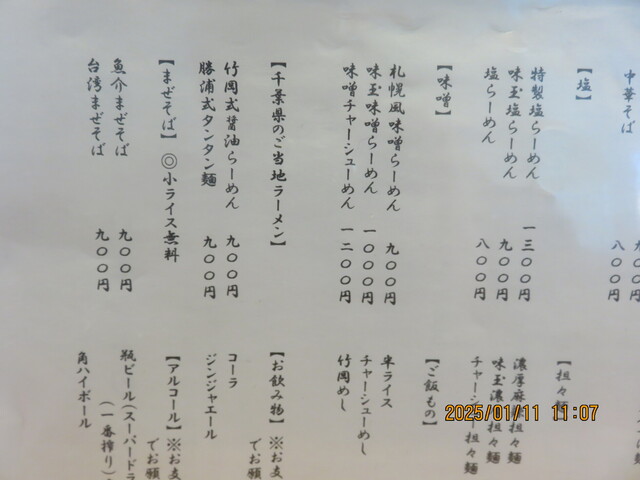 中華そば
八〇〇円
【塩】
特製塩らーめん 一三〇〇円
味玉塩らーめん 九〇〇円
塩らーめん 八〇〇円
【味噌】
札幌風味噌らーめん 九〇〇円
味玉味噌らーめん 一〇〇〇円
味噌チャーシューめん 一二〇〇円
【千葉県のご当地ラーメン】
竹岡式醤油らーめん 九〇〇円
勝浦式タンタン麺 九〇〇円
【まぜそば】◎小ライス無料
魚介まぜそば 九〇〇円
台湾まぜそば 九〇〇円
【担々麺】
濃厚麻 担々麺
味玉濃 担々麺
チャーシュー担々麺
【ご飯もの】
半ライス
チャーシューめし
竹岡めし
【お飲み物】※お支
でお願
コーラ
ジンジャエール
【アルコール】※お支
でお願
瓶ビール(スーパードラ
(一番搾り)
角ハイボール
2025/01/11 11:07